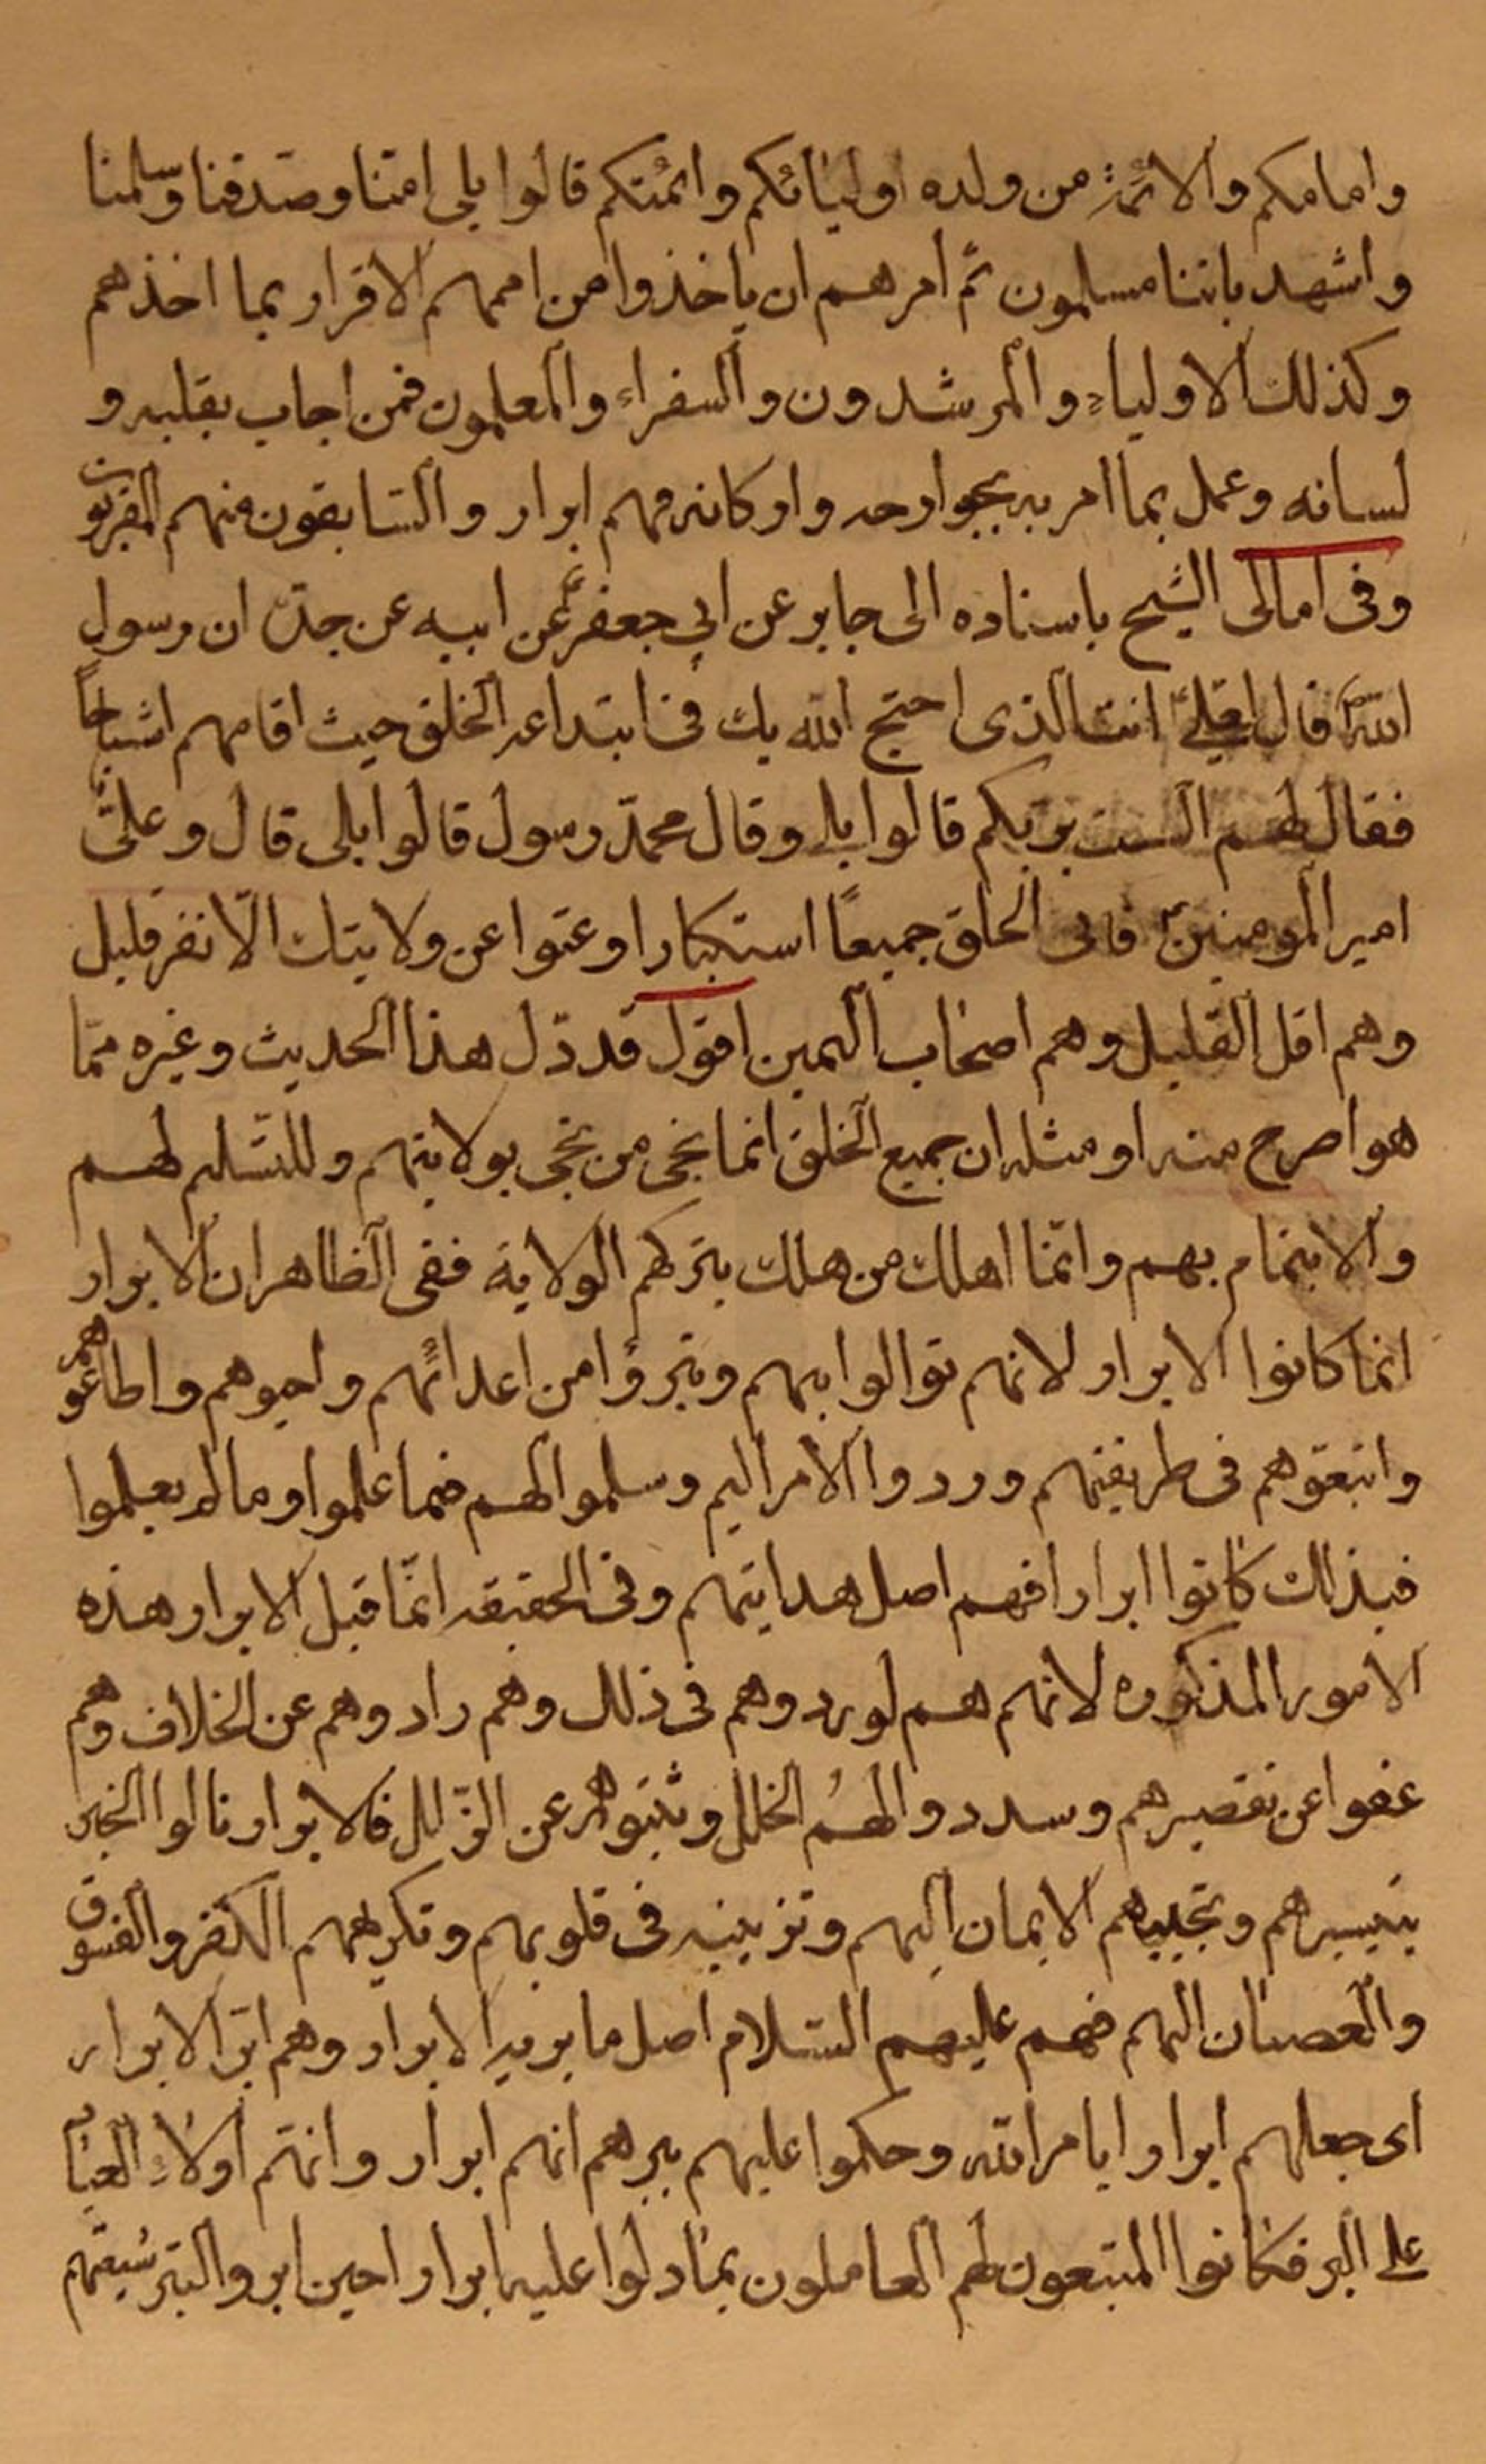 وامامكم والائمة من ولده اوليائكم وائمتكم قالوا بلى امنا وصدقنا وسلمنا
واشهد باننا مسلمون ثم امرهم ان ياخذوا من اممهم الاقرار بما اخذهم
وكذلك الاولياء والمرشدون والسفراء والمعلمون فمن اجاب بقلبه و
لسانه وعمل بما امر به بجوارحه واركانه فهم ابرار والسابقون منهم المقربون
وفى امالى الشيخ باسناده الى جابر عن ابي جعفر عن ابيه عن جده ان رسول
الله ص قال لعلي انت الذى احتج الله بك فى ابتداعه الخلق حيث اقامهم اشباحاً
فقال لهم الست بربكم قالوا بلى وقال محمدّ رسول قالوا بلى قال وعلىّ
امير المومنين فابى الخلق جميعاً استكبارا وعتوا عن ولايتك الّا نفر قليل
وهم اقل القليل وهم اصحاب اليمين اقول قد دّل هذا الحديث وغيره ممّا
هو اصرح منه او مثله ان جميع الخلق انما نجى من نجى بولايتهم وللتسليم لهم
والايتمام بهم وانّما اهلك من هلك بتركهم الولاية ففى الظاهر ان الابرار
انما كانوا الابرار لانهم توالوا بهم وتبرؤا من اعدائهم واحبوهم واطاعوهم
واتبعوهم فى طريقتهم وردوا الامر اليهم وسلموا لهم فيما علموا وما لم يعلموا
فبذلك كانوا ابرارا فهم اصل هدايتهم وفى الحقيقه انّما قبل الابرار هذه
الامور المذكوره لانهم هم لوردوهم فى ذلك وهم رادوهم عن الخلاف وهم
عفوا عن تقصيرهم وسددوا لهم الخلل وثبتوهم عن الزّلل فالابرار نالوا الخير
بتيسيرهم وتحبيبهم الايمان اليهم وتزيينه فى قلوبهم وتكريههم الكفر والفسوق
والعصيان اليهم فهم عليهم السّلام اصل ما يريد الابرار وهم ابرّ الابرار
اى جعلهم ابرارا بامر الله وحكموا عليهم ببرهم انهم ابرار وانهم اولاء العباد
على البر فكانوا المتبعون لهم العاملون بما دلوا عليه ابرارا حين ابروا البتر شيعتهم